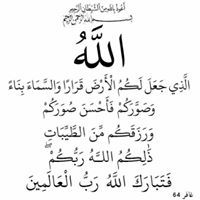 أعوذ بالله من الشيطان الرجيم
بسم الله الرحمن الرحيم
اللَّهُ
الَّذِي جَعَلَ لَكُمُ الْأَرْضَ قَرَارًا وَالسَّمَاءَ بِنَاءً
وَصَوَّرَكُمْ فَأَحْسَنَ صُوَرَكُمْ
وَرَزَقَكُم مِّنَ الطَّيِّبَاتِ
ذَٰلِكُمُ اللَّهُ رَبُّكُمْ ۖ
فَتَبَارَكَ اللَّهُ رَبُّ الْعَالَمِينَ
غافر 64